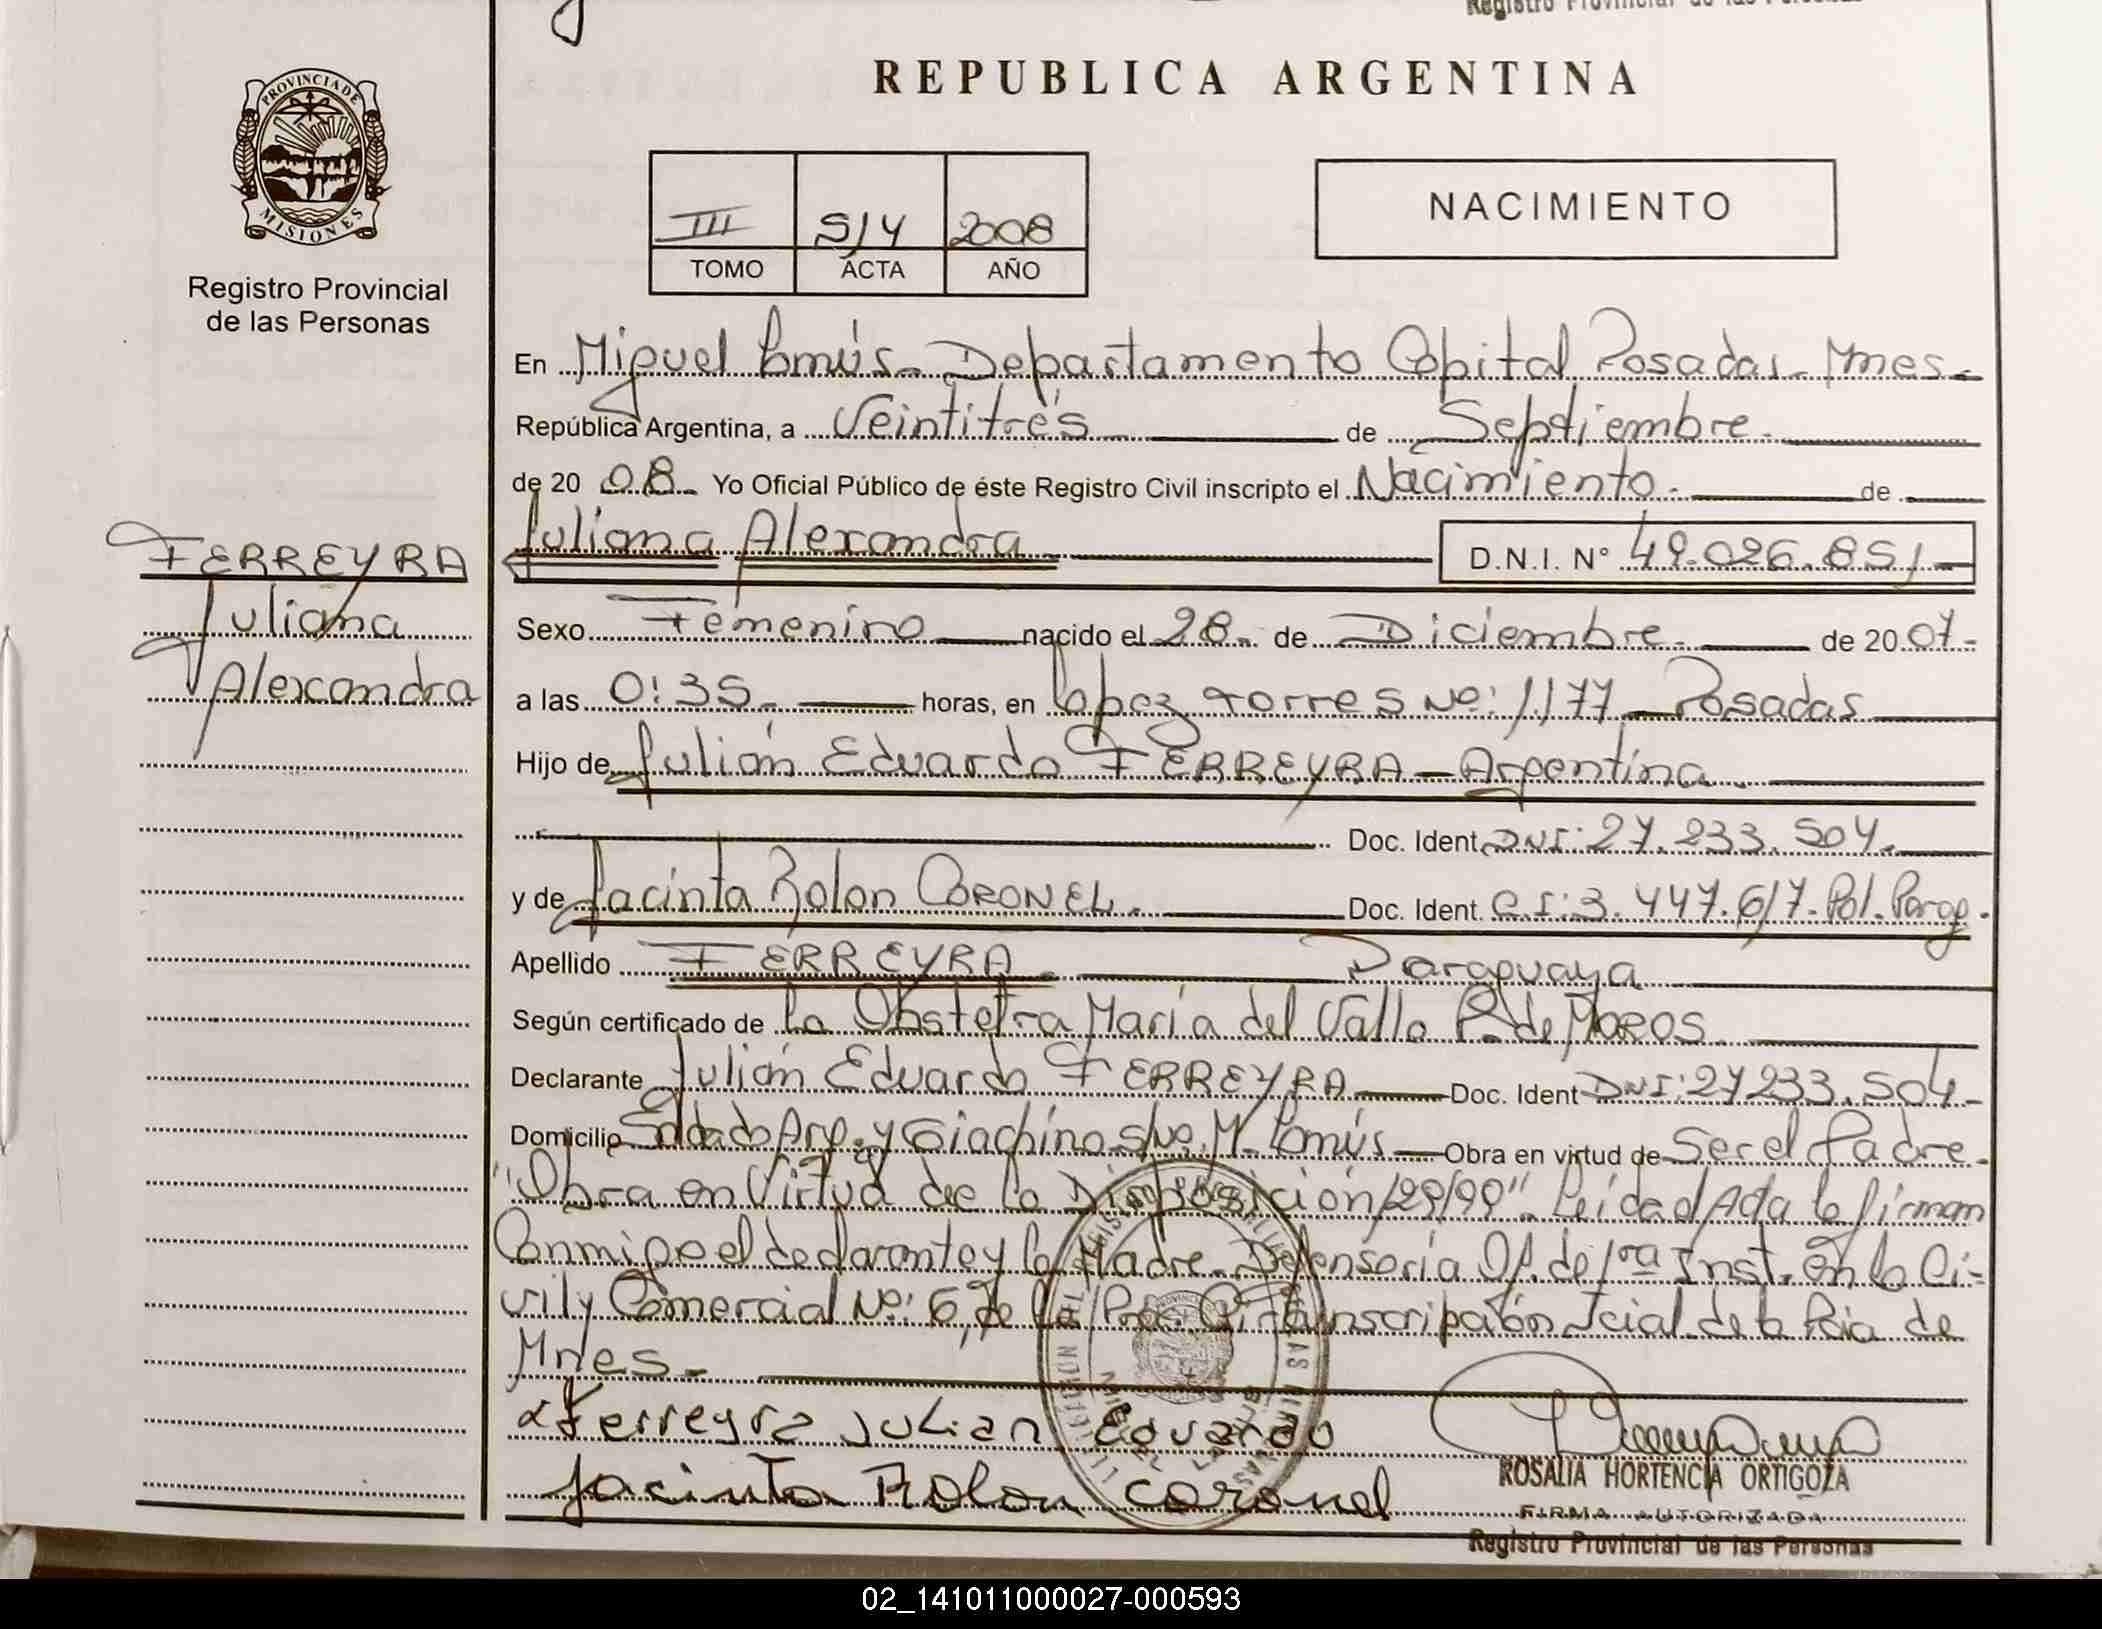 Registro Provincial de las Personas
REPUBLICA ARGENTINA
PROVINCIA DE MISIONES
Registro Provincial
de las Personas
III S/4 2008
TOMO ACTA AÑO
NACIMIENTO
En Miguel Lanús - Departamento Capital Posadas - Mnes -
República Argentina, a Veintitrés de Septiembre.
de 20 08 Yo Oficial Público de éste Registro Civil inscripto el Nacimiento. de
FERREYRA
Juliana
Alexandra
Juliana Alexandra D.N.I. Nº 49.026.851
Sexo Femenino nacido el 28 de Diciembre. de 20 07-
a las 0:35 horas, en López Torres Nº: 1.177 - Posadas
Hijo de Julián Eduardo FERREYRA - Argentina
Doc. Ident. DNI: 27.233.504.
y de Jacinta Rolon CORONEL. Doc. Ident. C.I: 3.447.617. Pol. Parag.
Apellido FERREYRA. Paraguaya
Según certificado de La Obstetra María del Valle P. de Moros
Declarante Julián Eduardo FERREYRA Doc. Ident DNI: 27 233.504-
Domicilio Soldado Arg. y Giachino s/Nº. M. Lanús Obra en virtud de Ser el Padre.
"Obra en Virtud de la Disposición 29/99". Leída el Acta la firman
Conmigo el declarante y la Madre. Defensoría Of. de 1ra Inst. en lo Ci-
vil y Comercial Nº: 6, de la Circunscripción Jcial de la Pcia de
Mnes.-
Ferreyra Julian Eduardo
Jacinta Rolon Coronel
ROSALIA HORTENCIA ORTIGOZA
FIRMA AUTORIZADA
Registro Provincial de las Personas
02_141011000027-000593